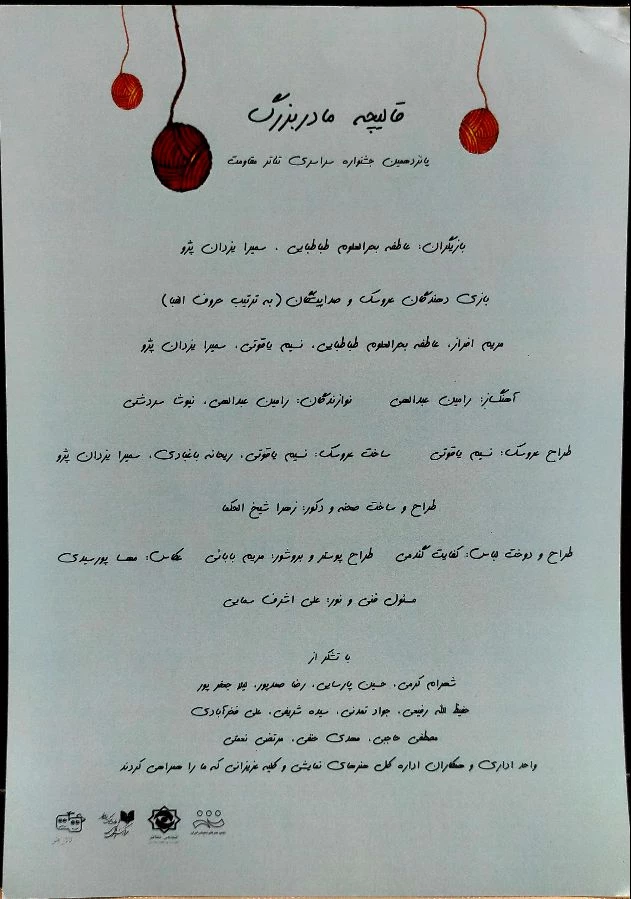 قالیچه مادربزرگ
پانزدهمین جشنواره سراسری تئاتر مقاومت
بازیگران: عاطفه بحرالعلوم طباطبایی ، سمیرا یزدان پژو
بازی دهندگان عروسک و صداپیشگان (به ترتیب حروف الفبا)
مریم افراز، عاطفه بحرالعلوم طباطبایی، نسیم یاقوتی، سمیرا یزدان پژو
آهنگساز: رامین عبدالهی نوازندگان: رامین عبدالهی، نیوشا سردشتی
طراح عروسک: نسیم یاقوتی ساخت عروسک: نسیم یاقوتی، ریحانه باغبادی، سمیرا یزدان پژو
طراح و ساخت صحنه و دکور: زهرا شیخ الحکما
طراح و دوخت لباس: کفایت گندمی طراح پوستر و بروشور: مریم بابائی عکاس: مهسا پورسیدی
مسئول فنی و نور: علی اشرف سمایی
با تشکر از
شهرام کرمی، حسین پارسایی، رضا صمدپور، لیلا جعفر پور
حفیظ الله رفیعی، جواد تمدنی، سیده شریفی، علی فخرآبادی
مصطفی حاجی، مهدی حنفی، مرتضی نعمتی
واحد اداری و همکاران اداره کل هنرهای نمایشی و کلیه عزیزانی که ما را همراهی کردند